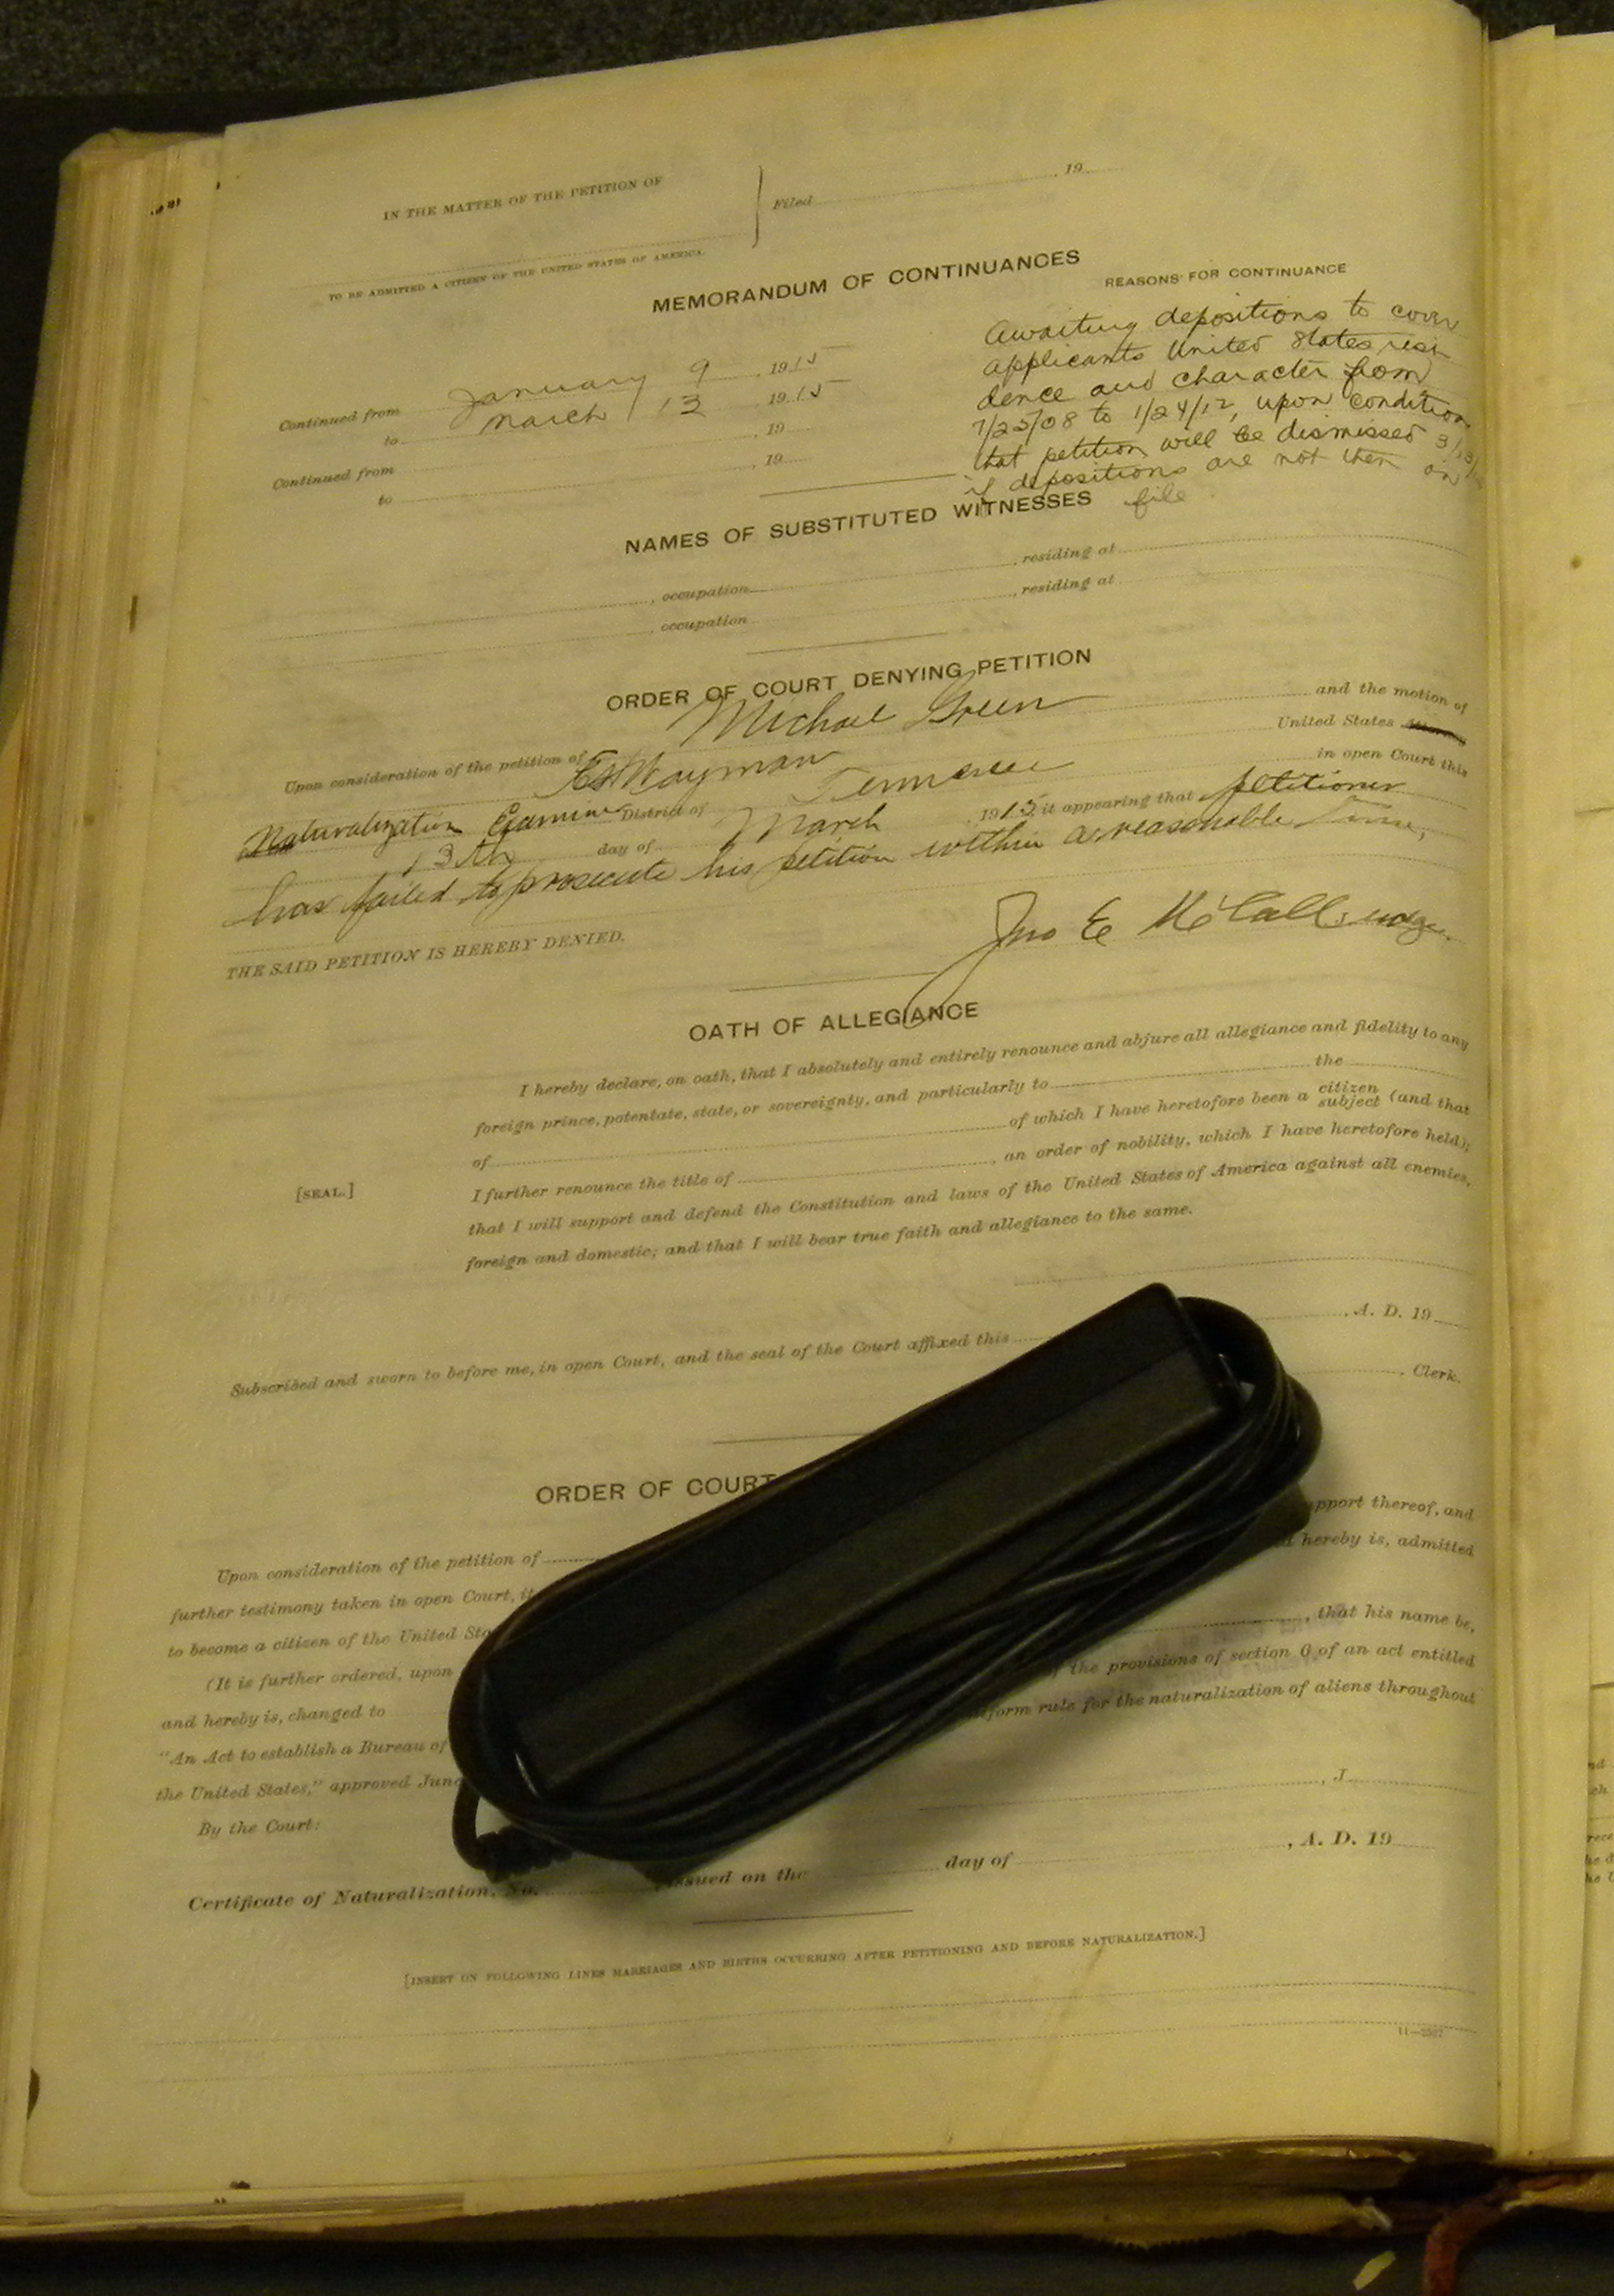 IN THE MATTER OF THE PETITION OF
Filed 19
TO BE ADMITTED A CITIZEN OF THE UNITED STATES OF AMERICA.
MEMORANDUM OF CONTINUANCES
REASONS FOR CONTINUANCE
Continued from January 9, 1915
to March 13, 1915
Continued from , 19
to , 19
Awaiting depositions to cover
applicants United States resi-
dence and character from
7/25/08 to 1/24/12, upon condition
that petition will be dismissed 3/13/15
if depositions are not then on
file
NAMES OF SUBSTITUTED WITNESSES
, occupation , residing at
, occupation , residing at
ORDER OF COURT DENYING PETITION
Upon consideration of the petition of Michael Green and the motion of
Wayman United States
Naturalization Examiner District of Tennessee in open Court this
13th day of March , 1915, it appearing that petitioner
has failed to prosecute his petition within a reasonable time,
THE SAID PETITION IS HEREBY DENIED.
Jno E McCall Judge.
OATH OF ALLEGIANCE
I hereby declare, on oath, that I absolutely and entirely renounce and abjure all allegiance and fidelity to any
foreign prince, potentate, state, or sovereignty, and particularly to the
of of which I have heretofore been a citizen subject (and that
I further renounce the title of , an order of nobility, which I have heretofore held);
that I will support and defend the Constitution and laws of the United States of America against all enemies,
foreign and domestic; and that I will bear true faith and allegiance to the same.
[SEAL.]
Subscribed and sworn to before me, in open Court, and the seal of the Court affixed this , A. D. 19
, Clerk.
ORDER OF COURT
Upon consideration of the petition of pport thereof, and
further testimony taken in open Court, it hereby is, admitted
to become a citizen of the United Sta
(It is further ordered, upon , that his name be,
and hereby is, changed to f the provisions of section 6 of an act entitled
"An Act to establish a Bureau of form rule for the naturalization of aliens throughout
the United States," approved June
By the Court: , J
Certificate of Naturalization, No. , issued on the day of , A. D. 19
[INSERT ON FOLLOWING LINES MARRIAGES AND BIRTHS OCCURRING AFTER PETITIONING AND BEFORE NATURALIZATION.]